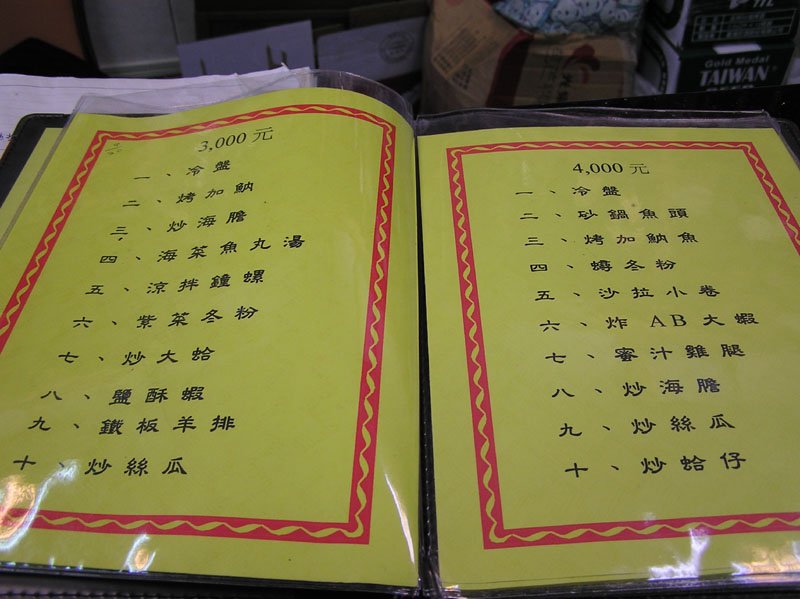 3,000 元
一、冷盤
二、烤加魶
三、炒海膽
四、海菜魚丸湯
五、涼拌鐘螺
六、紫菜冬粉
七、炒大蛤
八、鹽酥蝦
九、鐵板羊排
十、炒絲瓜
4,000 元
一、冷盤
二、砂鍋魚頭
三、烤加魶魚
四、蟳冬粉
五、沙拉小卷
六、炸 AB 大蝦
七、蜜汁雞腿
八、炒海膽
九、炒絲瓜
十、炒蛤仔
Gold Medal
TAIWAN